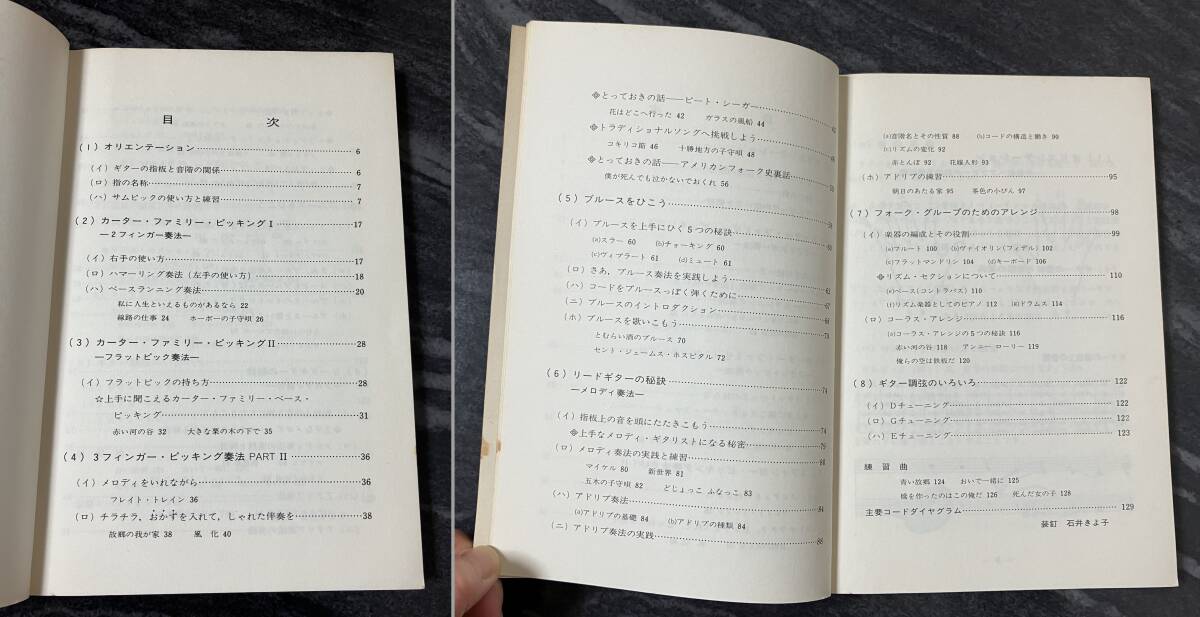 目 次
(1) オリエンテーション 6
(イ) ギターの指板と音階の関係 6
(ロ) 指の名称 7
(ハ) サムピックの使い方と練習 7
(2) カーター・ファミリー・ピッキング I 17
—2フィンガー奏法—
(イ) 右手の使い方 17
(ロ) ハマーリング奏法 (左手の使い方) 18
(ハ) ベースランニング奏法 20
私に人生といえるものがあるなら 22
線路の仕事 24 ホーボーの子守唄 26
(3) カーター・ファミリー・ピッキング II 28
—フラットピック奏法—
(イ) フラットピックの持ち方 28
☆上手に聞こえるカーター・ファミリー・ベース・
ピッキング 31
赤い河の谷 32 大きな栗の木の下で 35
(4) 3フィンガー・ピッキング奏法 PART II 36
(イ) メロディをいれながら 36
フレイト・トレイン 36
(ロ) チラチラ,おかずを入れて,しゃれた伴奏を 38
故郷の我が家 38 風 化 40
❖とっておきの話——ピート・シーガー 42
花はどこへ行った 42 ガラスの風船 44
❖トラディショナルソングへ挑戦しよう
コキリコ節 46 十勝地方の子守唄 48
❖とっておきの話——アメリカンフォーク史裏話
僕が死んでも泣かないでおくれ 56
(5) ブルースをひこう
(イ) ブルースを上手にひく5つの秘訣
(a)スラー 60 (b)チョーキング 60
(c)ヴィブラート 61 (d)ミュート 61
(ロ) さあ,ブルース奏法を実践しよう
(ハ) コードをブルースっぽく弾くために
(ニ) ブルースのイントロダクション
(ホ) ブルースを歌いこもう
とむらい酒のブルース 70
セント・ジェームス・ホスピタル 72
(6) リードギターの秘訣 74
—メロディ奏法—
(イ) 指板上の音を頭にたたきこもう 74
❖上手なメロディ・ギタリストになる秘密
(ロ) メロディ奏法の実践と練習
マイケル 80 新世界 81
五木の子守唄 82 どじょっこ ふなっこ 83
(ハ) アドリブ奏法 84
(a)アドリブの基礎 84 (b)アドリブの種類 84
(ニ) アドリブ奏法の実践
(a)音階名とその性質 88 (b)コードの構造と働き 90
(c)リズムの変化 92
赤とんぼ 92 花嫁人形 93
(ホ) アドリブの練習 95
朝日のあたる家 95 茶色の小びん 97
(7) フォーク・グループのためのアレンジ 98
(イ) 楽器の編成とその役割 99
(a)フルート 100 (b)ヴァイオリン(フィデル) 102
(c)フラットマンドリン 104 (d)キーボード 106
❖リズム・セクションについて 110
(e)ベース(コントラバス) 110
(f)リズム楽器としてのピアノ 112 (g)ドラムス 114
(ロ) コーラス・アレンジ 116
(a)コーラス・アレンジの5つの秘訣 116
赤い河の谷 118 アンニー ローリー 119
俺らの空は鉄板だ 120
(8) ギター調弦のいろいろ 122
(イ) Dチューニング 122
(ロ) Gチューニング 122
(ハ) Eチューニング 123
練 習 曲
青い故郷 124 おいで一緒に 125
橋を作ったのはこの俺だ 126 死んだ女の子 128
主要コードダイヤグラム 129
装釘 石井きよ子